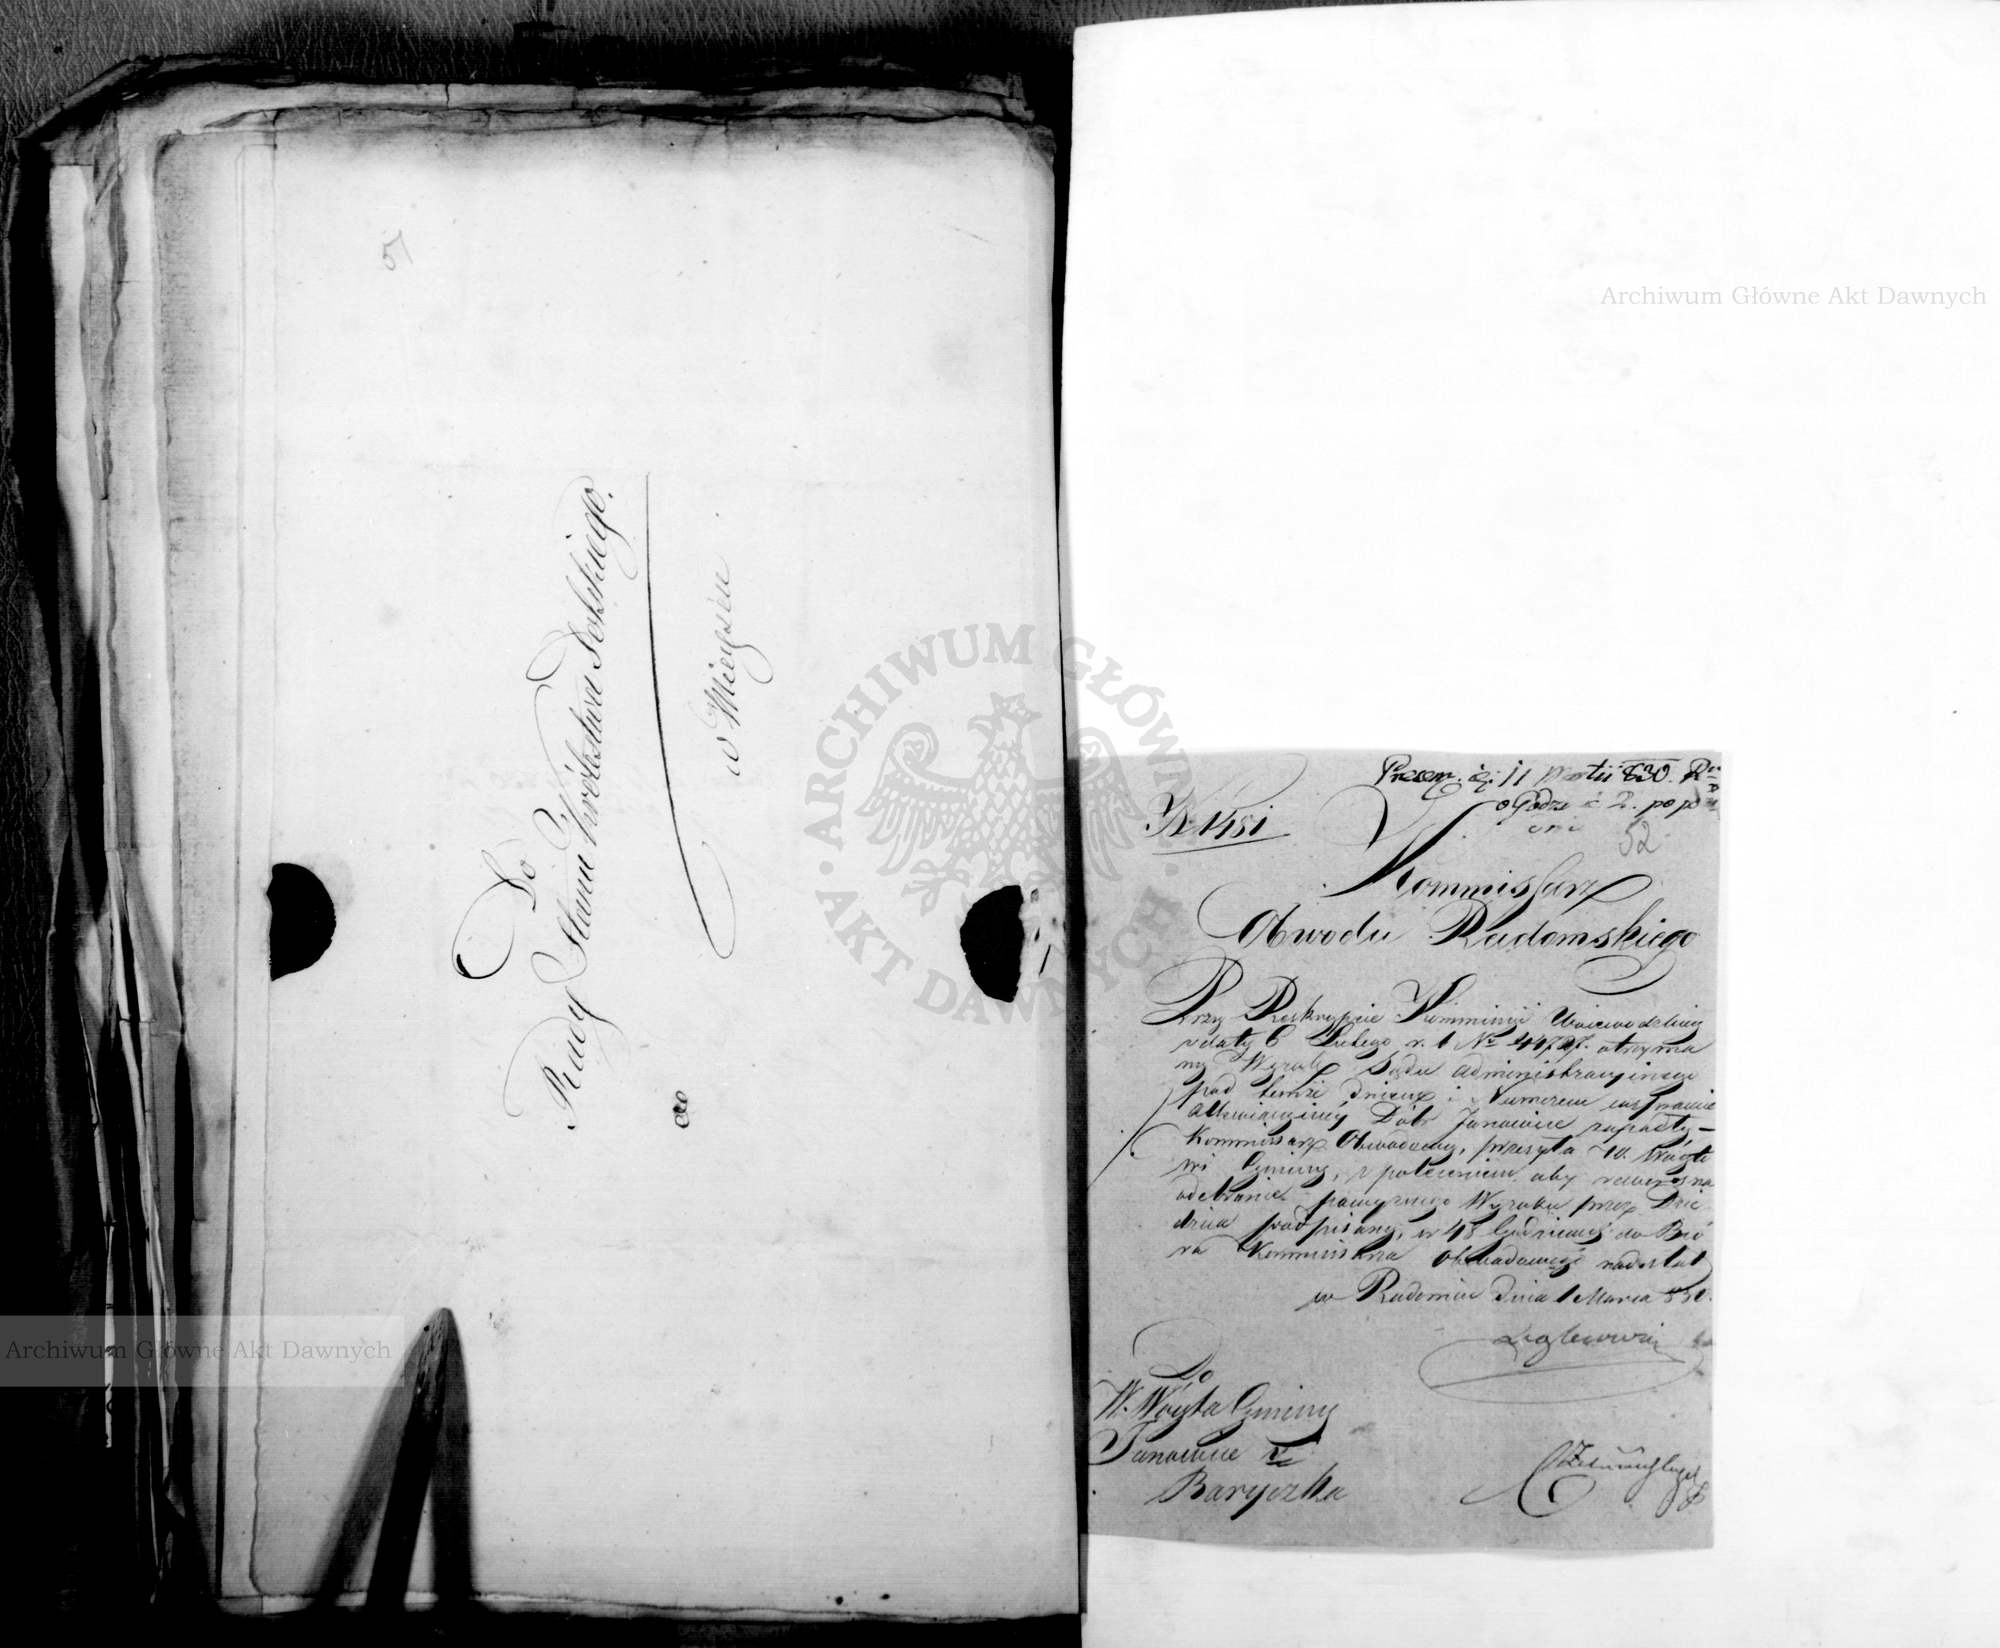 51
Do
Rady Stanu Królestwa Polskiego.
w Mieyscu
Archiwum Główne Akt Dawnych
ARCHIWUM GŁÓWNE AKT DAWNYCH
Archiwum Główne Akt Dawnych
Presen. 11 Martii 830.
o Godzinie 2. po po
N. 1481
52
Kommissarz
Obwodu Radomskiego
Przy Reskrypcie Kommissyi Woiewodzkiey
z daty 6 Lutego r. b. Nr 44797. otrzyma
ny Wyrok Sądu Administracyinego
pod temże dniem i Numerem w sprawie
Dóbr Janowice zapadły –
Kommissarz Obwodowy, przesyła W. Wóyto
wi Gminy, z poleceniem, aby rewers na
odebranie powyższego Wyroku przez Dzie
dzica podpisany, w 48 Godzinach do Bió
ra Kommissarza Obwodowego nadesłał
w Radomiu dnia 1 Marca 830.
Do
W. Wóyta Gminy
Janowice
Baryczka